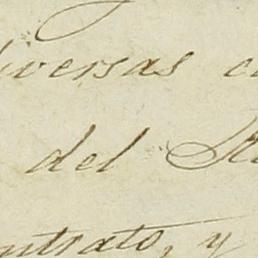 iversas c
del
ntrato, y